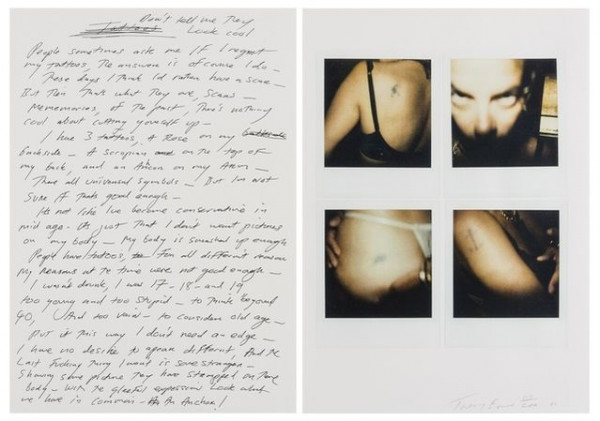 Don't tell me They
Tattoos Look cool
People sometimes ask me If I regret
my tattoos, The answer is of course I do –
These days I think Id rather have a scar –
But Then Thats what They are, Scars –
Mememories, of The past, Thers nothing
cool about cutting yourself up –
I have 3 tattoos, A Rose on my
backside – A scropian on the top of
my back, and an Anchor on my Arm –
Thare all universal symbols – But Im not
sure If thats good enough –
Its not like Ive become conservative in
mid age – Its Just That I don't want pictures
on my body – My body is smashed up enough
People have tattoos, For all different reasons
My reasons at The time were not good enough –
I wasn't drunk, I was 17 - 18 - and 19
too young and too stupid – to Think beyond
40, And too vain – to consider old age –
PUT it This way I don't need an edge –
I have no desire to apear different, And The
Last Fucking Thing I want is some stranger –
Showing some picture They have stamped on There
body – With The gleeful expression Look what
we have in common – An Anchor!